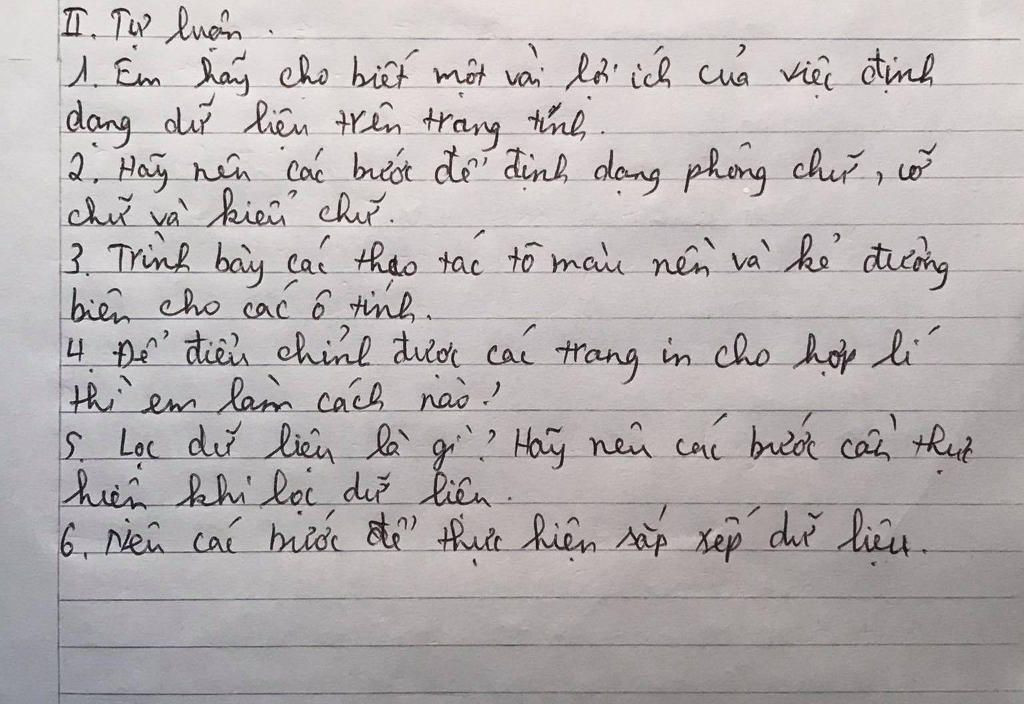 II. Tự luận.
1. Em hãy cho biết một vài lợi ích của việc định
dạng dữ liệu trên trang tính.
2. Hãy nên các bước để định dạng phông chữ, cỡ
chữ và kiểu chữ.
3. Trình bày các thao tác tô màu nền và kẻ đường
biên cho các ô tính.
4. Để điều chỉnh được các trang in cho hợp lí
thì em làm cách nào?
5. Lọc dữ liệu là gì? Hãy nêu các bước cần thực
hiện khi lọc dữ liệu.
6. Nêu các bước để thực hiện sắp xếp dữ liệu.